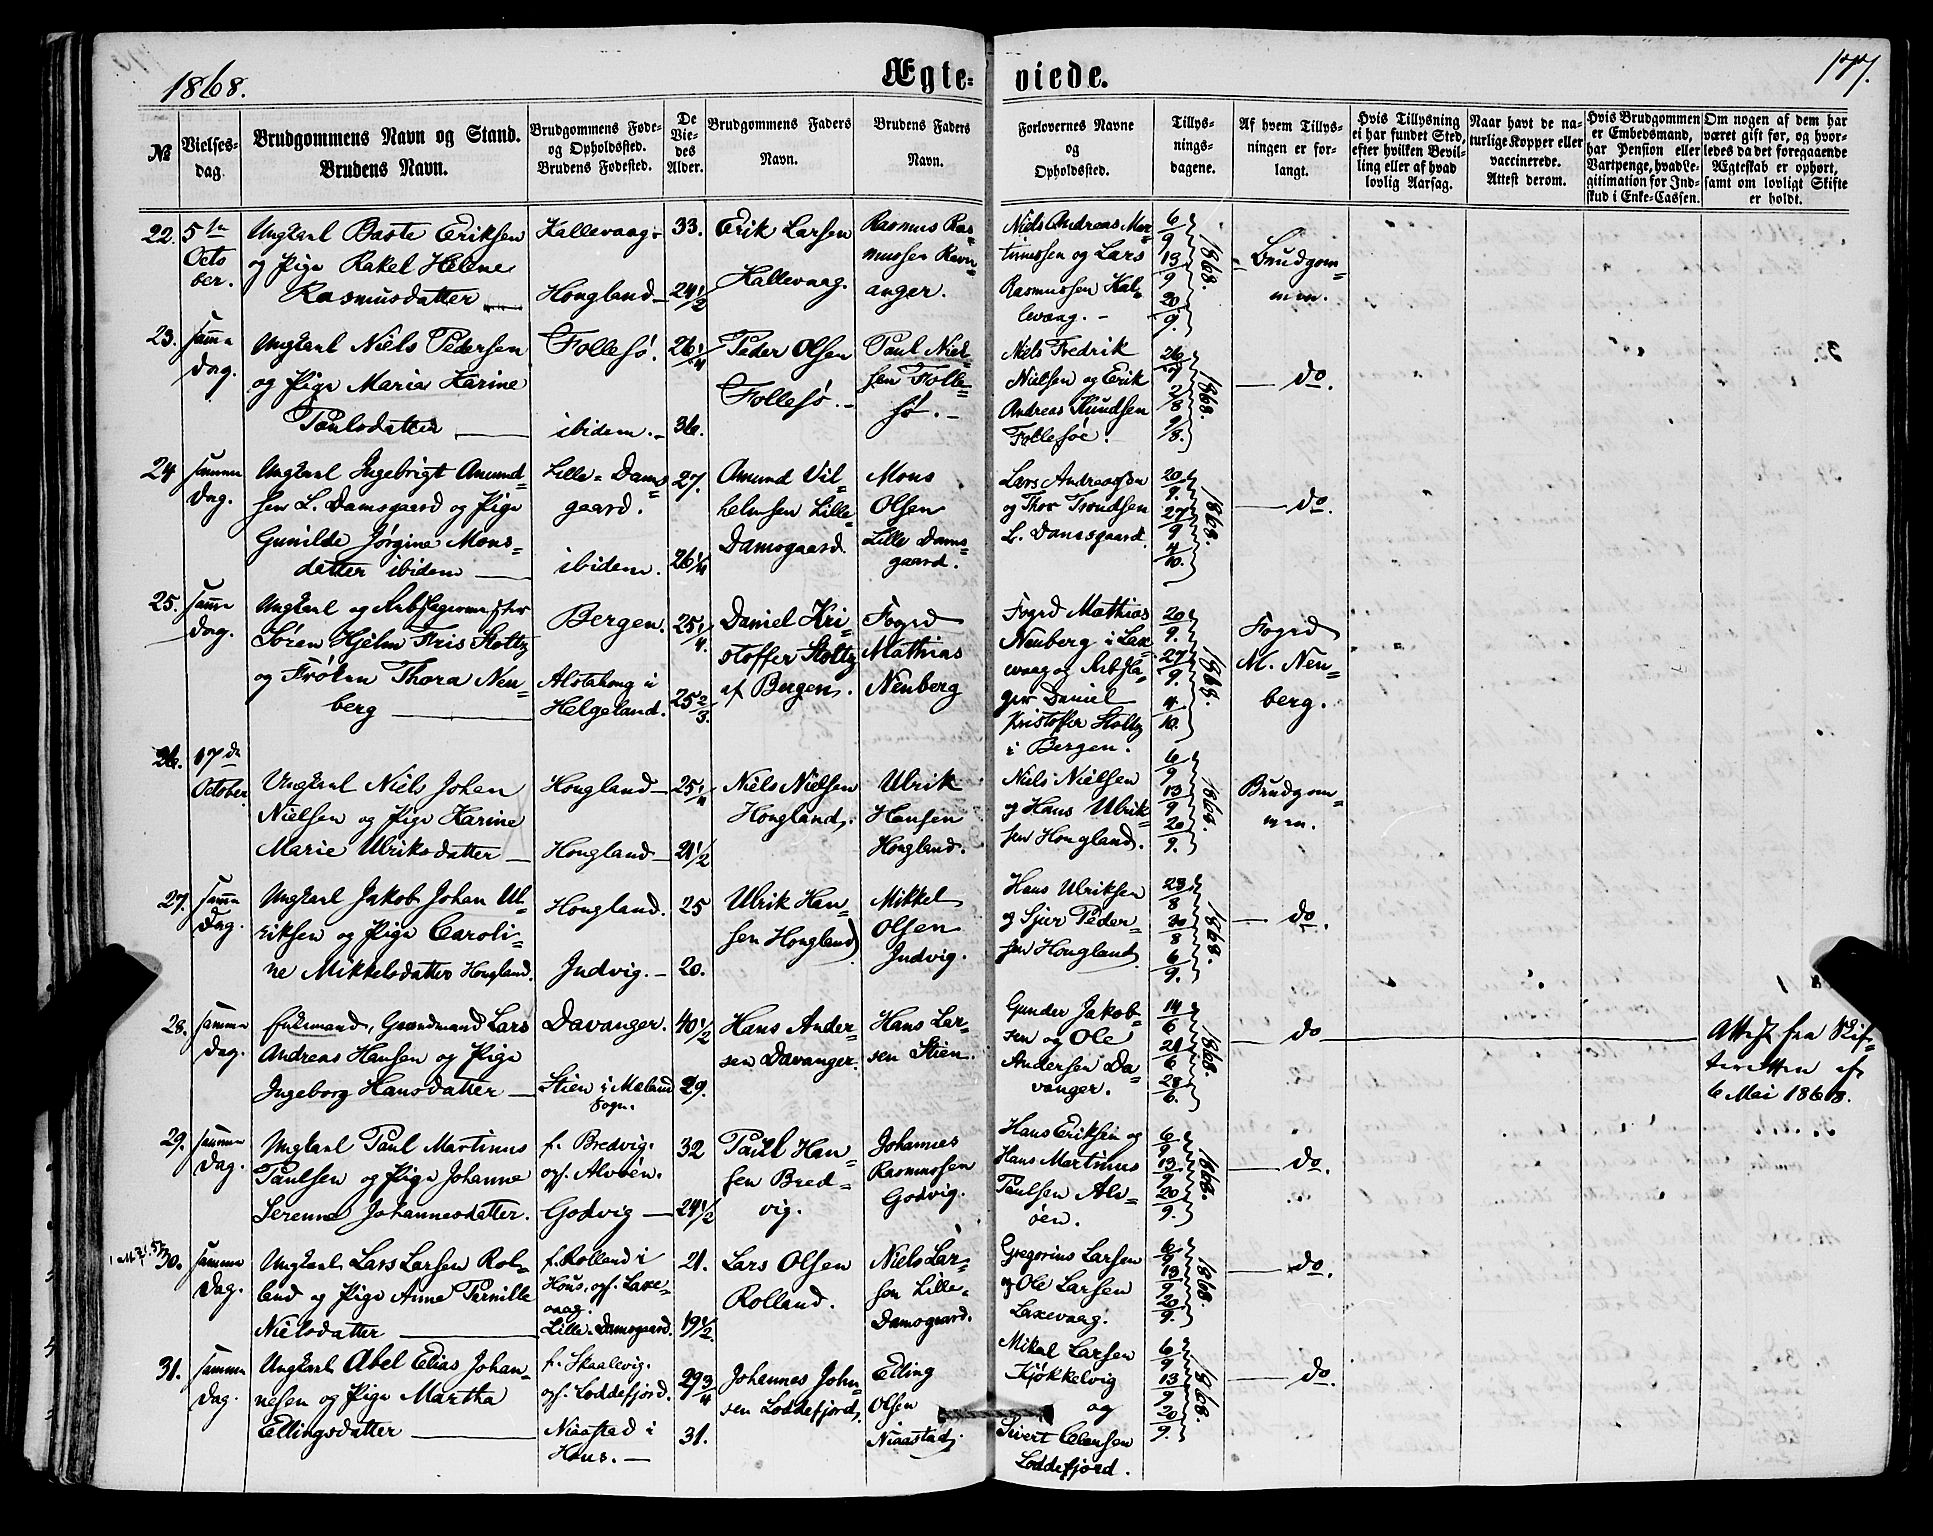 1868.
Ægte-
viede.
177.
№
Vielses-
dag.
Brudgommens Navn og Stand.
Brudens Navn.
Brudgommens Føde-
og Opholdssted.
Brudens Fødested.
De
Vie-
des
Alder.
Brudgommens Faders
Navn.
Brudens Faders
Navn.
Forlovernes Navne
og
Opholdssted.
Tillys-
nings-
dagene.
Af hvem Tillys-
ningen er for-
langt.
Hvis Tillysning
ei har fundet Sted,
efter hvilken Bevil-
ling eller af hvad
lovlig Aarsag.
Naar havt de na-
turlige Kopper eller
vaccinerede.
Attest derom.
Hvis Brudgommen
er Embedsmand,
har Pension eller
Vartpenge, hvad Le-
gitimation for Ind-
skud i Enke-Cassen.
Om nogen af dem har
været gift før, og hvor-
ledes da det foregaaende
Ægteskab er ophørt,
samt om lovligt Skifte
er holdt.
22.
5te
Octo
ber.
Ungkarl Baste Eriksen
og Pige Rakel Helene
Rasmusdatter
Kallevaag
Hougland
33.
24 1/2
Erik Larsen
Kallevaag.
Rasmus Ras-
mussen Ravn-
anger.
Niels Andreas Mar-
tinussen og Lars
Rasmussen Kal-
levaag.
6/9 13/9 20/9 1868.
Brudgom-
men.
23.
samme
Dag.
Ungkarl Niels Pedersen
og Pige Maria Karine
Paulsdatter
Follesø.
ibidem.
26 1/4
36.
Peder Olsen
Follesø.
Paul Niel-
sen Folle-
sø.
Niels Fredrik
Nielsen og Erik
Andreas Knudsen
Follesøe.
26/7 2/8 9/8. 1868.
do.
24
samme
Dag.
Ungkarl Ingebrigt Amund-
sen L. Damsgaard og Pige
Gunilde Jørgine Mons-
datter ibidem
Lille-Dams-
gaard.
ibidem.
27.
26 1/4
Amund Vil-
helmsen Lille-
Damsgaard.
Mons
Olsen
Lille Dams-
gaard.
Lars Andreassen
og Thor Trondsen
L. Damsgaard.
20/9. 27/9 4/10. 1868.
do.
25.
samme
Dag.
Søren Hjelm Friis Stoltz
og Frøken Thora Neu-
berg
Bergen.
Alstahoug i
Helgeland.
25 1/4.
25 2/3.
Daniel Kri-
stoffer Stoltz
af Bergen.
Fogrd
Mathias
Neuberg
Fogrd Mathias
Neuberg i Lax-
evaag og Arbsla-
ger Daniel
Kristoffer Stoltz
i Bergen.
20/9. 27/9. 4/10. 1868.
Fogrd
M. Neu-
berg.
26.
17de
October
Ungkarl Niels Johan
Nielsen og Pige Karine
Marie Ulriksdatter
Hougland
Hougland
25 1/4
21 1/2
Niels Nielsen
Hougland.
Ulrik
Hansen
Hougland.
Niels Nielsen
og Hans Ulrik-
sen Hougland.
6/9 13/9 20/9. 1868.
Brudgom-
men.
27.
samme
Dag.
Ungkarl Jakob Johan Ul-
riksen og Pige Caroli-
ne Mikkelsdatter Hougland.
Hougland.
Indvig.
25
20.
Ulrik Han-
sen Hougland
Mikkel
Olsen
Indvig.
Hans Ulriksen
og Sjur Peder-
sen Hougland.
23/8 30/8 6/9. 1868.
do.
28.
samme
Dag.
Enkemand, Grandmand Lars
Andreas Hansen og Pige
Ingeborg Hansdatter
Davanger.
Stien i Maland
Sogn.
40 1/2
29.
Hans Ander-
sen Davanger.
Hans Lar-
sen Stien.
Gunder Jakob-
sen og Ole
Andersen Da-
vanger.
14/6 21/6 28/6. 1868.
do
Attest fra Skif-
teretten af
6 Mai 1868.
29.
samme
Dag.
Ungkarl Paul Martinus
Paulsen og Pige Johanne
Serenne Johannesdatter.
f. Bredvig.
opf. Alvøen.
Godvig
32
24 1/2
Paul Han-
sen Bred-
vig.
Johannes
Rasmussen
Godvig.
Hans Eriksen og
Hans Martinus
Paulsen Alv-
øen.
6/9 13/9 20/9. 1868.
do.
30.
samme
Dag.
Ungkarl Lars Larsen Rol-
land og Pige Anne Pernille
Nielsdatter
f. Rolland i
Hous, opf. Laxe-
vaag.
Lille-Damsgaard.
21.
19 1/2.
Lars Olsen
Rolland.
Niels Lar-
sen Lille-
Damsgaard.
Gregorius Larsen
og Ole Larsen
Laxevaag.
6/9 13/9 20/9. 1868.
do.
31.
samme
Dag.
Ungkarl Abel Elias Johan-
nesen og Pige Martha
Ellingsdatter
f. Skaalevig.
opf. Loddefjord.
Niaastad i
Hous.
29 3/4
31.
Johannes John-
sen Loddefjord.
Elling
Olsen
Niaastad.
Mikal Larsen
Kjøkkelvig
og
Sivert Clausen
Loddefjord.
6/9 13/9 20/9. 1868.
do.